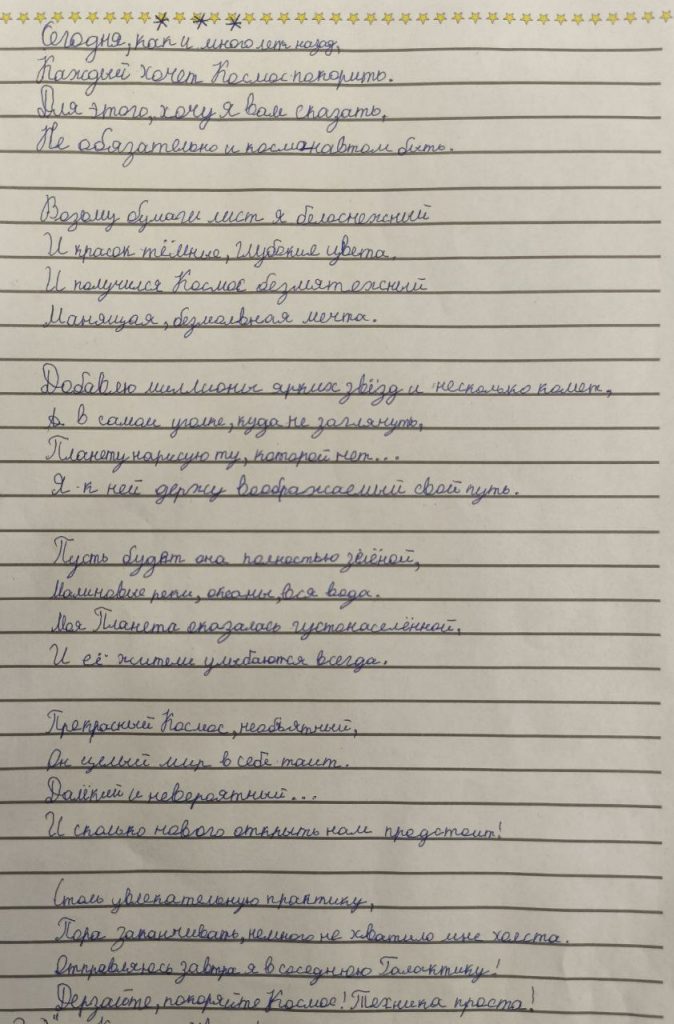 * * *
Сегодня, как и много лет назад,
Каждый хочет Космос покорить.
Для этого, хочу я вам сказать,
Не обязательно и космонавтом быть.
Возьму бумаги лист я белоснежный
И красок тёмные, глубокие цвета.
И получился Космос безмятежный
Манящая, безмолвная мечта.
Добавлю миллионы ярких звёзд и несколько комет,
в самом уголке, куда не заглянуть,
Планету нарисую ту, которой нет...
Я к ней держу воображаемый свой путь.
Пусть будет она полностью зелёной,
Малиновые реки, океаны, вся вода.
Моя Планета оказалась густонаселённой,
И её жители улыбаются всегда.
Прекрасный Космос, необъятный,
Он целый мир в себе таит.
Далёкий и невероятный...
И сколько нового открыть нам предстоит!
Столь увлекательную практику,
Пора заканчивать, немного не хватило мне холста.
Отправляюсь завтра я в соседнюю Галактику!
Дерзайте, покоряйте Космос! Техника проста!